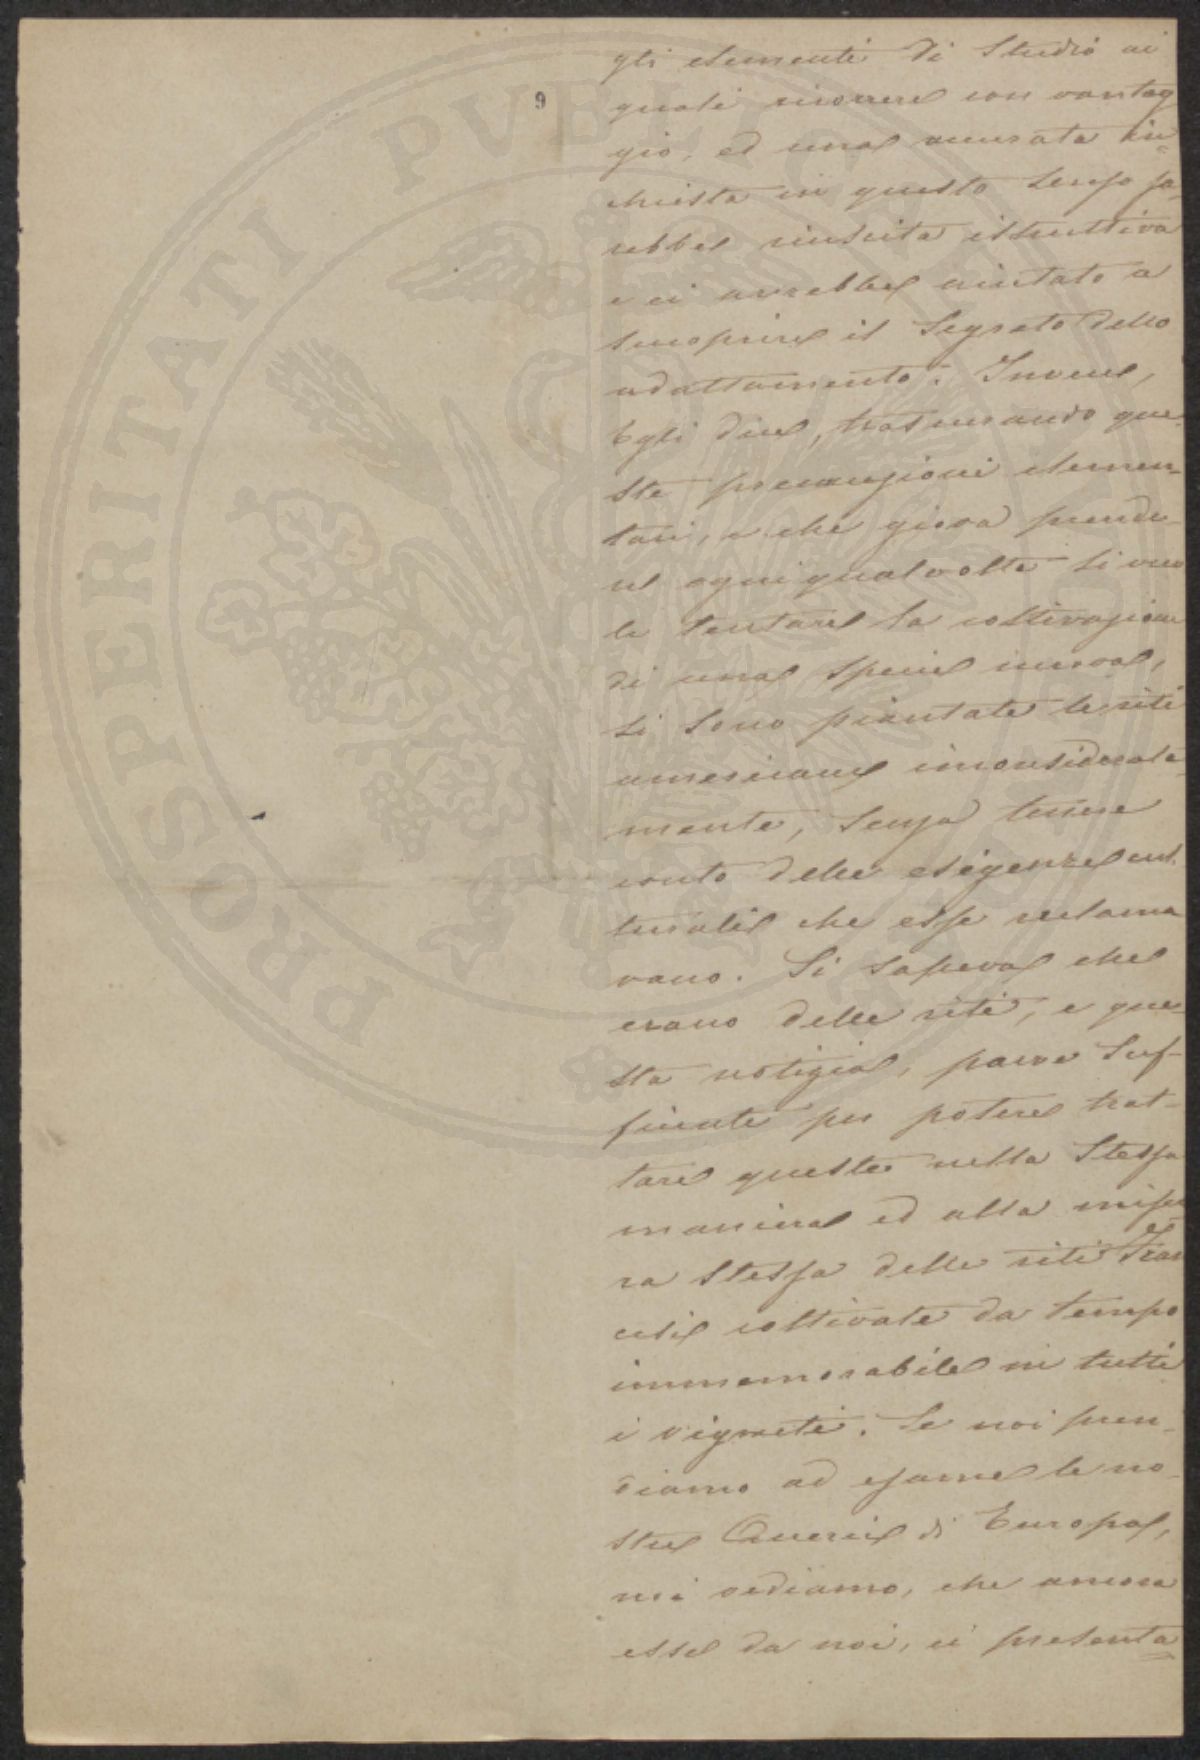 9
gli elementi di Studio ai
quali ricorrere con vantag
gio, ed una accurata in=
chiesta in questo senso sa-
rebbe riuscita istruttiva
e ci avrebbe aiutato a
scuoprire il Segreto dello
adattamento. Invece,
Egli dice, trascurando que-
ste precauzioni elemen-
tari, e che giova prende-
re ogniqualvolta si vuo
le tentare la coltivazione
di una specie nuova,
si sono piantate le viti
americane inconsiderata-
mente, senza tenere
conto delle esigenze cul-
turali che esse reclama
vano. Si sapeva che
erano delle viti, e que-
sta notizia, parve suf-
ficiente per potere trat-
tare queste nella Stessa
maniera ed alla misu-
ra stessa delle viti Fran
cesi coltivate da tempo
immemorabile in tutti
i vigneti. Se noi pren-
diamo ad esame le no-
stre Quercie di Europa,
noi vediamo, che ancora
esse da noi, ci presenta=
PROSPERITATI PVBLICAE